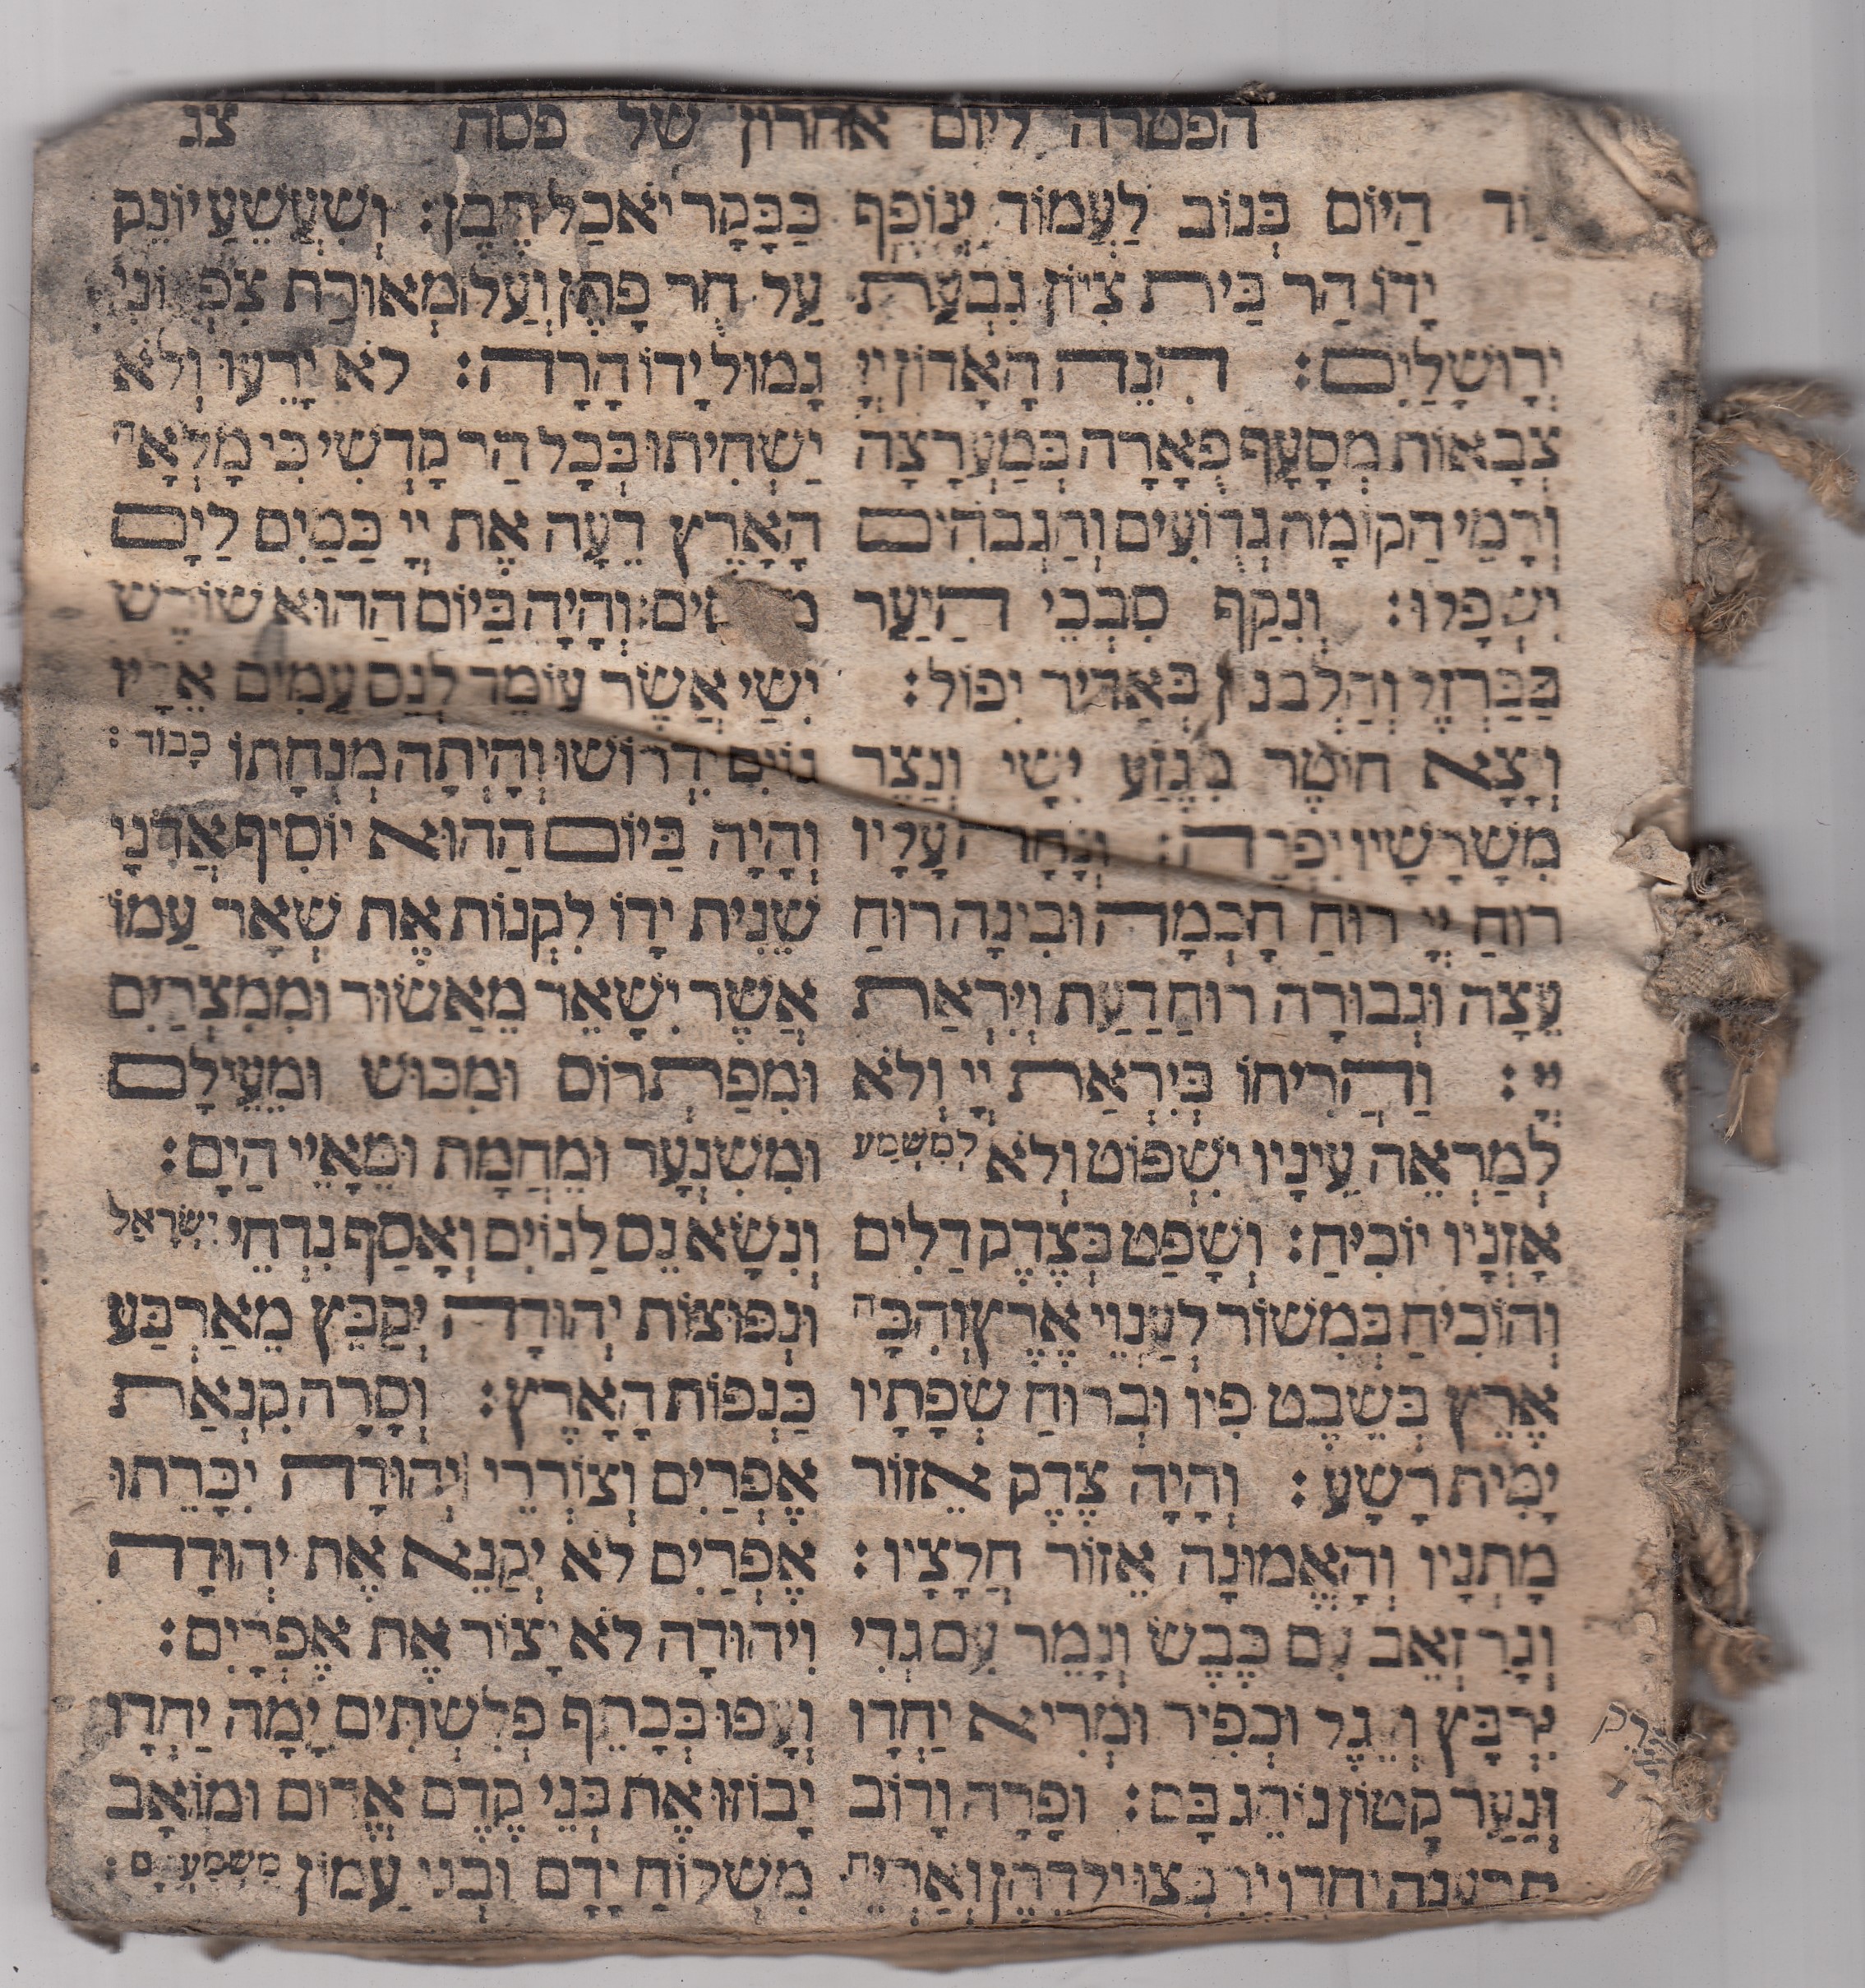 הפטרה ליום אחרון של פסח צג
הַיּוֹם בְּנוֹב לַעֲמוֹד יְנוֹפֵף
יָדוֹ הַר בַּיִת צִיּוֹן גִּבְעַת
יְרוּשָׁלָיִם: הִנֵּה הָאָדוֹן יְיָ
צְבָאוֹת מְסָעֵף פֻּארָה בְּמַעֲרָצָה
וְרָמֵי הַקּוֹמָה גְּדוּעִים וְהַגְּבֹהִים
יִשְׁפָּלוּ: וְנִקַּף סִבְכֵי הַיַּעַר
בַּבַּרְזֶל וְהַלְּבָנוֹן בְּאַדִּיר יִפּוֹל:
וְיָצָא חוֹטֶר מִגֵּזַע יִשָׁי וְנֵצֶר
מִשָּׁרָשָׁיו יִפְרֶה: וְנָחָה עָלָיו
רוּחַ יְיָ רוּחַ חָכְמָה וּבִינָה רוּחַ
עֵצָה וּגְבוּרָה רוּחַ דַּעַת וְיִרְאַת
יְיָ: וַהֲרִיחוֹ בְּיִרְאַת יְיָ וְלֹא
לְמַרְאֵה עֵינָיו יִשְׁפּוֹט וְלֹא לְמִשְׁמַע
אָזְנָיו יוֹכִיחַ: וְשָׁפַט בְּצֶדֶק דַּלִּים
וְהוֹכִיחַ בְּמִישׁוֹר לְעַנְוֵי אָרֶץ וְהִכָּה
אֶרֶץ בְּשֵׁבֶט פִּיו וּבְרוּחַ שְׂפָתָיו
יָמִית רָשָׁע: וְהָיָה צֶדֶק אֵזוֹר
מָתְנָיו וְהָאֱמוּנָה אֵזוֹר חֲלָצָיו:
וְגָר זְאֵב עִם כֶּבֶשׂ וְנָמֵר עִם גְּדִי
יִרְבָּץ וְעֵגֶל וּכְפִיר וּמְרִיא יַחְדָּו
וְנַעַר קָטוֹן נוֹהֵג בָּם: וּפָרָה וָדוֹב
תִּרְעֶנָה יַחְדָּו יִרְבְּצוּ יַלְדֵיהֶן וְאַרְיֵה
כַּבָּקָר יֹאכַל תֶּבֶן: וְשִׁעֲשַׁע יוֹנֵק
עַל חֻר פָּתֶן וְעַל מְאוּרַת צִפְעוֹנִי
גָּמוּל יָדוֹ הָדָה: לֹא יָרֵעוּ וְלֹא
יַשְׁחִיתוּ בְּכָל הַר קָדְשִׁי כִּי מָלְאָה
הָאָרֶץ דֵּעָה אֶת יְיָ כַּמַּיִם לַיָּם
וְהָיָה בַּיּוֹם הַהוּא שׁוֹרֶשׁ
יִשַׁי אֲשֶׁר עוֹמֵד לְנֵס עַמִּים אֵלָיו
גּוֹיִם יִדְרוֹשׁוּ וְהָיְתָה מְנֻחָתוֹ כָּבוֹד:
וְהָיָה בַּיּוֹם הַהוּא יוֹסִיף אֲדֹנָי
שֵׁנִית יָדוֹ לִקְנוֹת אֶת שְׁאָר עַמּוֹ
אֲשֶׁר יִשָּׁאֵר מֵאַשּׁוּר וּמִמִּצְרַיִם
וּמִפַּתְרוֹס וּמִכּוּשׁ וּמֵעֵילָם
וּמִשִּׁנְעָר וּמֵחֲמָת וּמֵאִיֵּי הַיָּם:
וְנָשָׂא נֵס לַגּוֹיִם וְאָסַף נִדְחֵי יִשְׂרָאֵל
וּנְפוּצוֹת יְהוּדָה יְקַבֵּץ מֵאַרְבַּע
כַּנְפוֹת הָאָרֶץ: וְסָרָה קִנְאַת
אֶפְרַיִם וְצוֹרְרֵי יְהוּדָה יִכָּרֵתוּ
אֶפְרַיִם לֹא יְקַנֵּא אֶת יְהוּדָה
וִיהוּדָה לֹא יָצוֹר אֶת אֶפְרָיִם:
וְעָפוּ בְכָתֵף פְּלִשְׁתִּים יָמָּה יַחְדָּו
יָבוֹזּוּ אֶת בְּנֵי קֶדֶם אֱדוֹם וּמוֹאָב
מִשְׁלוֹחַ יָדָם וּבְנֵי עַמּוֹן מִשְׁמַעְתָּם: